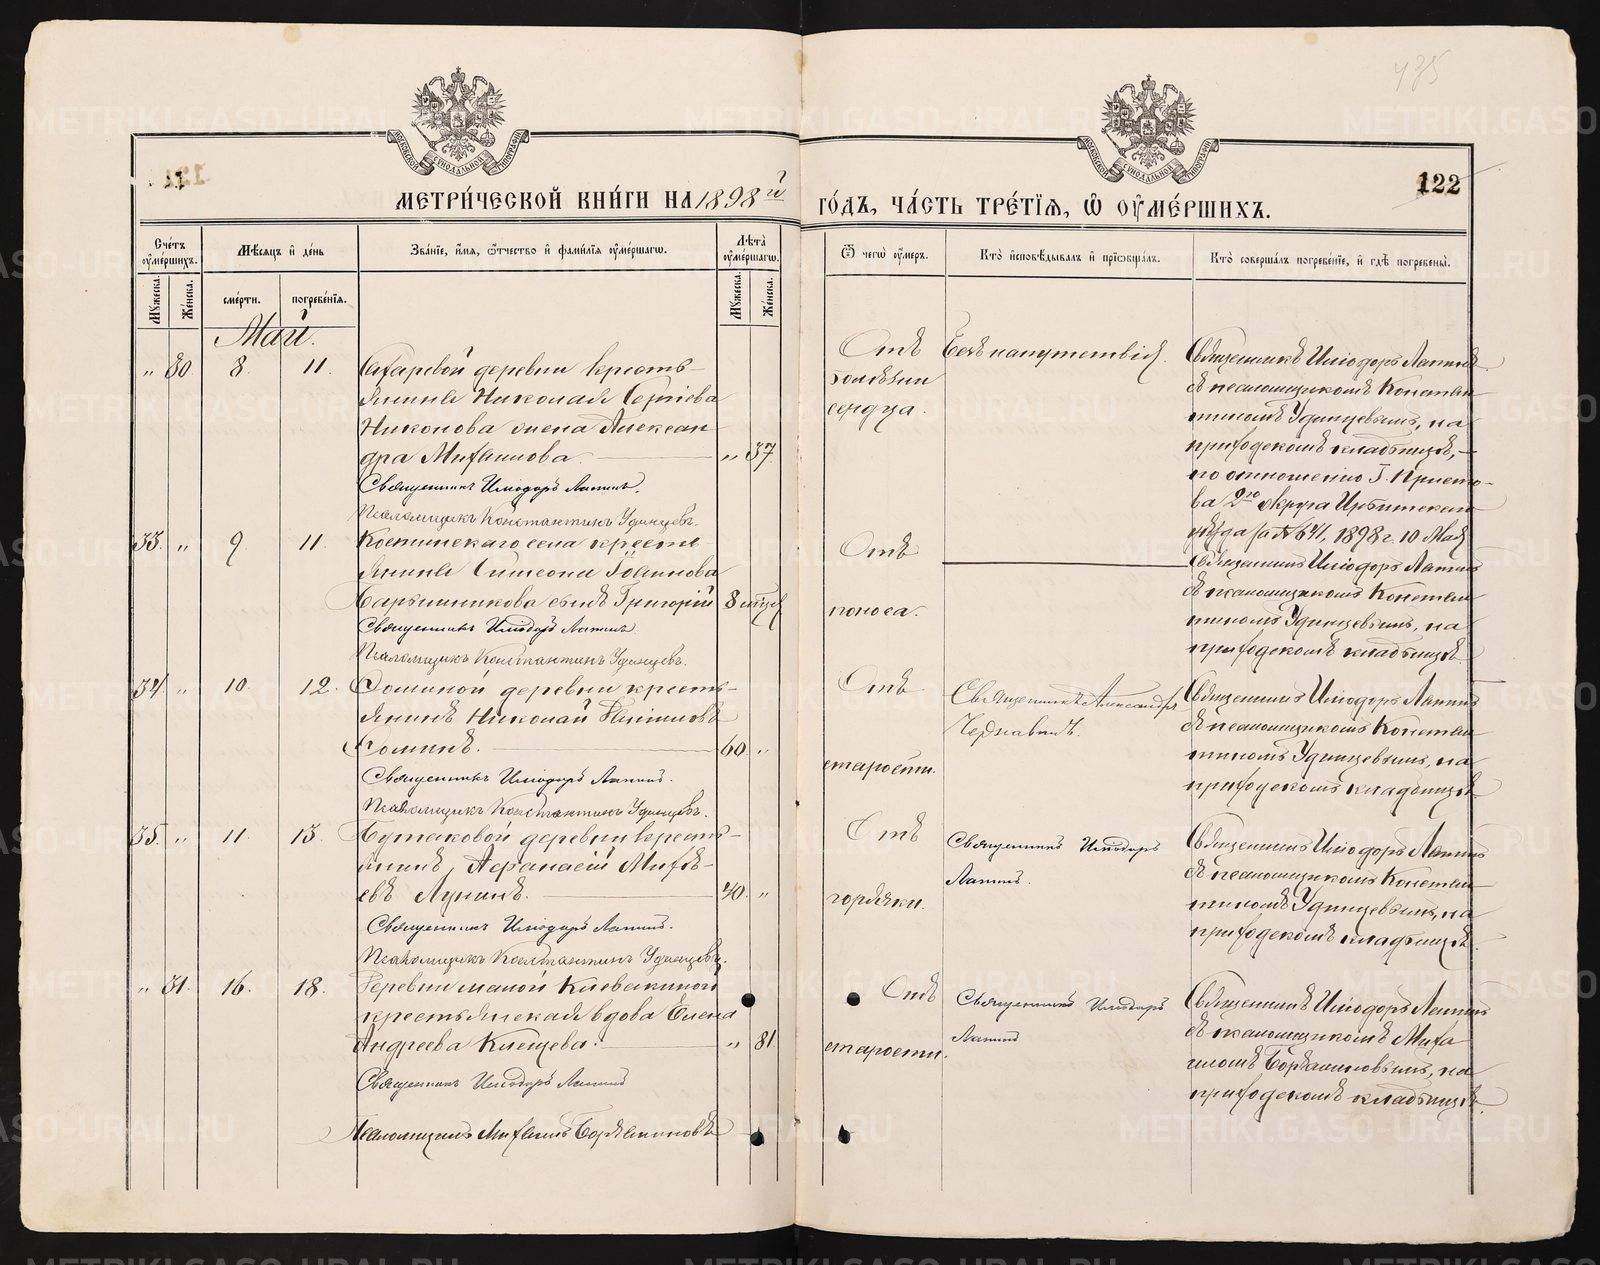 435
122
МЕТРИ́ЧЕСКОЙ КНИ́ГИ НА 1898й ГО́ДЪ, ЧА́СТЬ ТРЕ́ТІѦ, Ѡ ОУМЕ́РШИХЪ.
Сче́тъ оуме́ршихъ.
Мѣ́сяцъ и де́нь
Зва́ніе, и́мя, ѻ́тчество и фами́лія оуме́ршагѡ.
Лѣ́та оуме́ршагѡ.
Ѿ чегѡ̀ оу́меръ.
Кто̀ исповѣ́дывалъ и пріѡбща́лъ.
Кто̀ соверша́лъ погребе́ніе, и гдѣ̀ погребены̀.
Мꙋ́жеска.
Же́нска.
сме́рти.
погребе́нія.
Мꙋ́жеска.
Же́нска.
Май.
„ 30 8. 11.
деревни кресть-
янина Николая Сергіева
Никонова жена Алексан
дра Михаилова. „ 37
Священникъ Иліодоръ Лапинъ.
Псаломщикъ Константинъ Удинцевъ.
Отъ
болѣзни
сердца.
Безъ напутствія.
Священникъ Иліодоръ Лапинъ
съ псаломщикомъ Констан
тиномъ Удинцевымъ, на
приходскомъ кладбищѣ,
по отношенію Г. Приста-
ва 2го округа Ирбитскаго
уѣзда за № 641, 1898 г. 10 Мая
33. „ 9 11. Костинскаго села кресть
янина Симеона Іоаннова
сынъ Григорій 8 мѣся
Священникъ Иліодоръ Лапинъ
Псаломщикъ Константинъ Удинцевъ.
Отъ
поноса.
Священникъ Иліодоръ Лапинъ
съ псаломщикомъ Констан
тиномъ Удинцевымъ, на
приходскомъ кладбищѣ.
34 „ 10. 12. Ѳоминой деревни кресть-
янинъ Николай
Ѳоминъ. 60 „
Священникъ Иліодоръ Лапинъ.
Псаломщикъ Константинъ Удинцевъ.
Отъ
старости.
Священникъ Александръ
Священникъ Иліодоръ Лапинъ
съ псаломщикомъ Констан
тиномъ Удинцевымъ, на
приходскомъ кладбищѣ
35. „ 11. 13. деревни кресть-
янинъ, Афанасій Михѣ-
евъ Лунинъ. 40. „
Священникъ Иліодоръ Лапинъ.
Псаломщикъ Константинъ Удинцевъ.
Отъ
горячки.
Священникъ Иліодоръ
Лапинъ.
Священникъ Иліодоръ Лапинъ
съ псаломщикомъ Констан
тиномъ Удинцевымъ, на
приходскомъ кладбищѣ.
„ 31. 16. 18. Деревни малой
крестьянская вдова Елена
Андреева Клещева. „ 81
Священникъ Иліодоръ Лапинъ
Псаломщикъ Михаилъ
Отъ
старости.
Священникъ Иліодоръ
Лапинъ
Священникъ Иліодоръ Лапинъ
съ псаломщикомъ Миха
иломъ на
приходскомъ кладбищѣ.